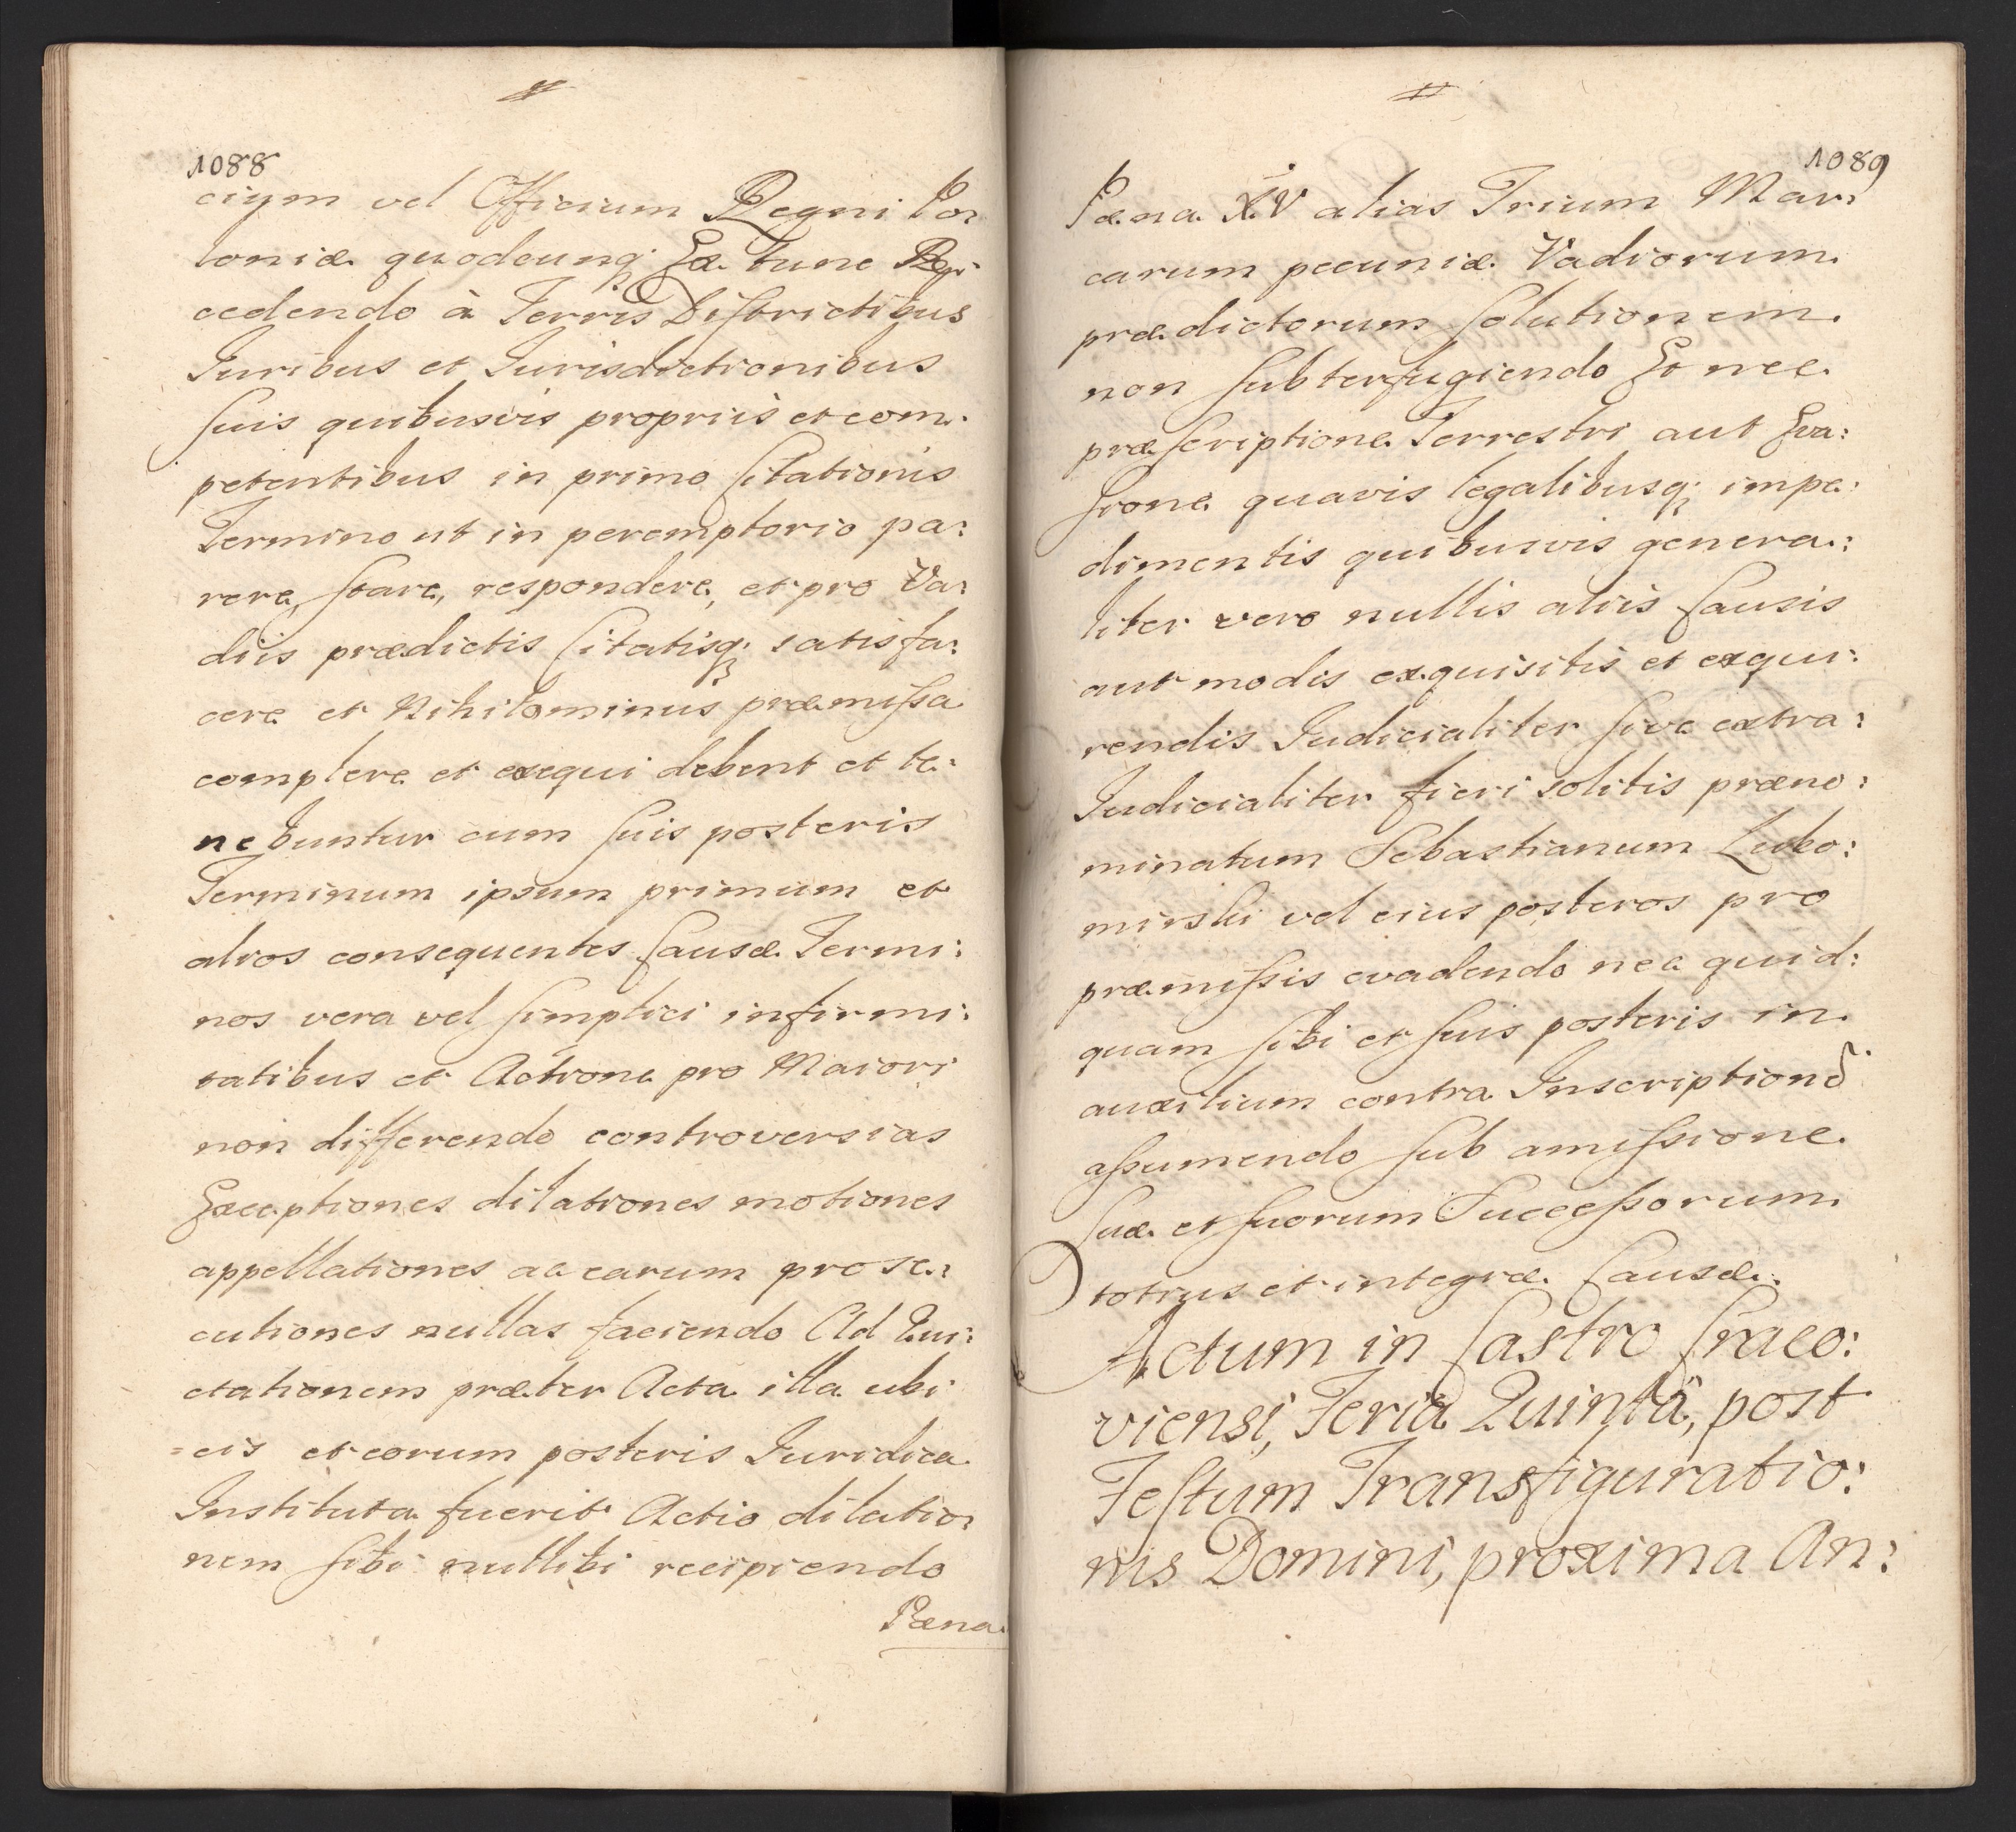 1088
ciym vel Officium Regni Po:
loniæ quodcunq; Ex tunc Re:
cedendo à Terris Districtibus
Juribus et Jurisdictionibus
suis quibusvis propriis et com:
petentibus in primo Citationis
Termino ut in peremptorio pa:
rere, stare, respondere, et pro Va:
diis prædictis Citatisq; satisfa:
cere et Nihilominus præmissa
complere et exequi debent et te:
nebuntur cum suis posteris
Terminum ipsum primum et
alios consequentes Causæ Termi:
nos vera vel simplici infirmi:
tatibus et Actione pro Maiori
non differendo controversias
Exceptiones dilationes motiones
appellationes ac earum prose:
cutiones nullas faciendo Ad Qui:
etationem præter Acta illa ubi
=eis et eorum posteris Juridica
Instituta fuerit Actio dilatio:
nem sibi nullibi recipiendo
Pæna
1089
Pæna XV alias Trium Mar:
carum pecuniæ Vadiorum
prædictorum solutionem
non subterfugiendo Et nec
præscriptione Terrestri aut Eva:
sione quavis legalibusq; impe:
dimentis quibusvis genera:
liter vero nullis aliis Causis
aut modis exquisitis et exqui:
rendis Judicialiter sive extra:
Judicialiter fieri solitis præno:
minatum Sebastianum Lubo:
mirski vel eius posteros pro
præmissis evadendo nec quid:
quam sibi et suis posteris in
auxilium contra Inscriptione
assumendo sub amissione
suæ et suorum Successorum
totius et integræ Causæ.
Actum in Castro Craco:
viensi, Feria Quintâ, post
Festum Transfiguratio:
nis Domini, proxima An: